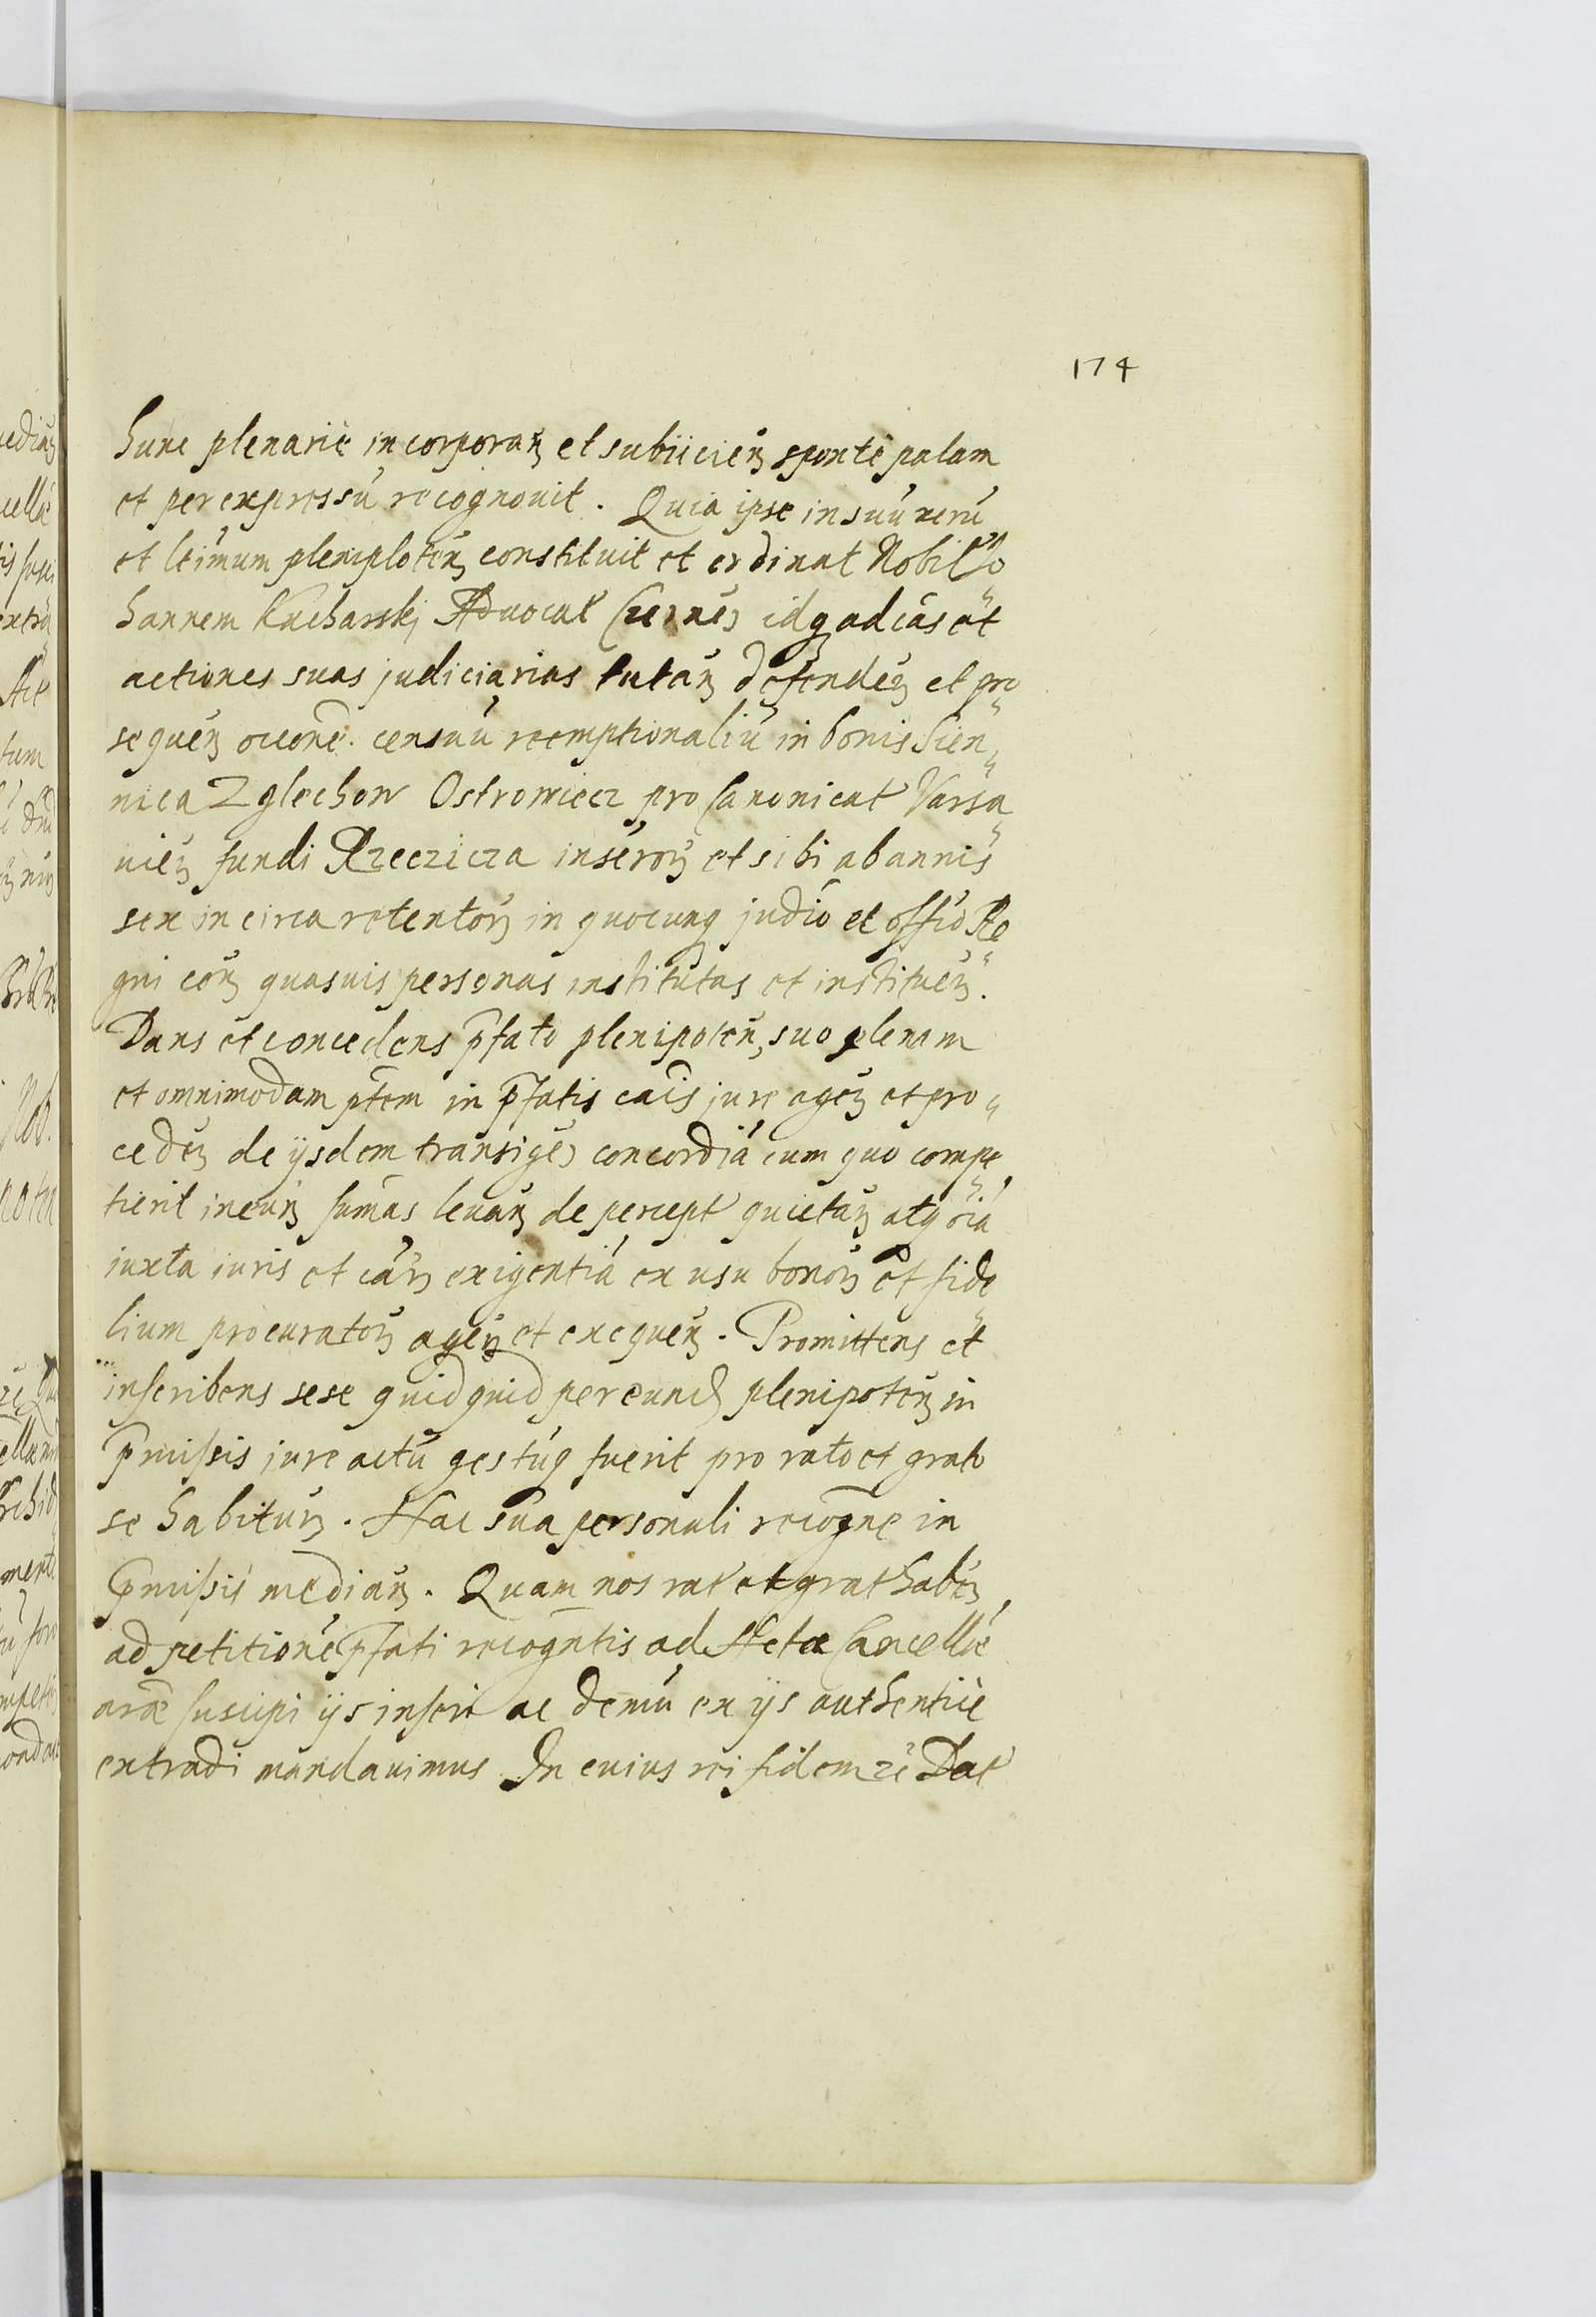 174
hunc plenariè incorporań et subiicień sponte palam
et per expressū recognouit. Quia ipse in suū uerū
et ltimum plenipłoteń constituit et ordinat Nobilē Jo
hannem Kucharskj Aduocat Czerneń idq̃ ad cās et
actiones suas judiciarias tutań defendeń et pro
sequeń occone. censuū reemptionaliū in bonis Sien„
nica Zglechow Ostrowiecz pro Canonicat Varsa„
uień fundi Rzeczicza inseroɤ et sibi ab annis
sex in circa retentoɤ in quocunq̃ judīo et offīo Re„
gni coɤ quasuis personas institutas et instituen̄.
Dans et concedens p̃fato plenipoteń suo plenam
et omnimodam ptēm in p̃fatis cāis jure ageń et pro„
cedeń de ijsdem transigeń concordiā cum quo compe„
tierit ineuń sum̄as leuań de percept quietań atq̃ oīa
iuxta iuris et cāɤ exigentiā ex usu bonoɤ et fide
lium procuratoɤ ageń et exequeń. Promittens et
inscribens sese quidquid per eund̃ plenipoteń in
p̃missis jure actū gestūq̃ fuerit pro rato et grato
se habituɤ. Hac sua personali recogn̄e in
p̃missis mediań. Quam nos rat et grat habeń,
ad petitionē p̃fati recogn̄tis ad Acta Cancellæ
nr̄æ suscipi ijs inscri ac demū ex ijs authenticè
extradi mandauimus In cuius rei fidem zc̄ Dat